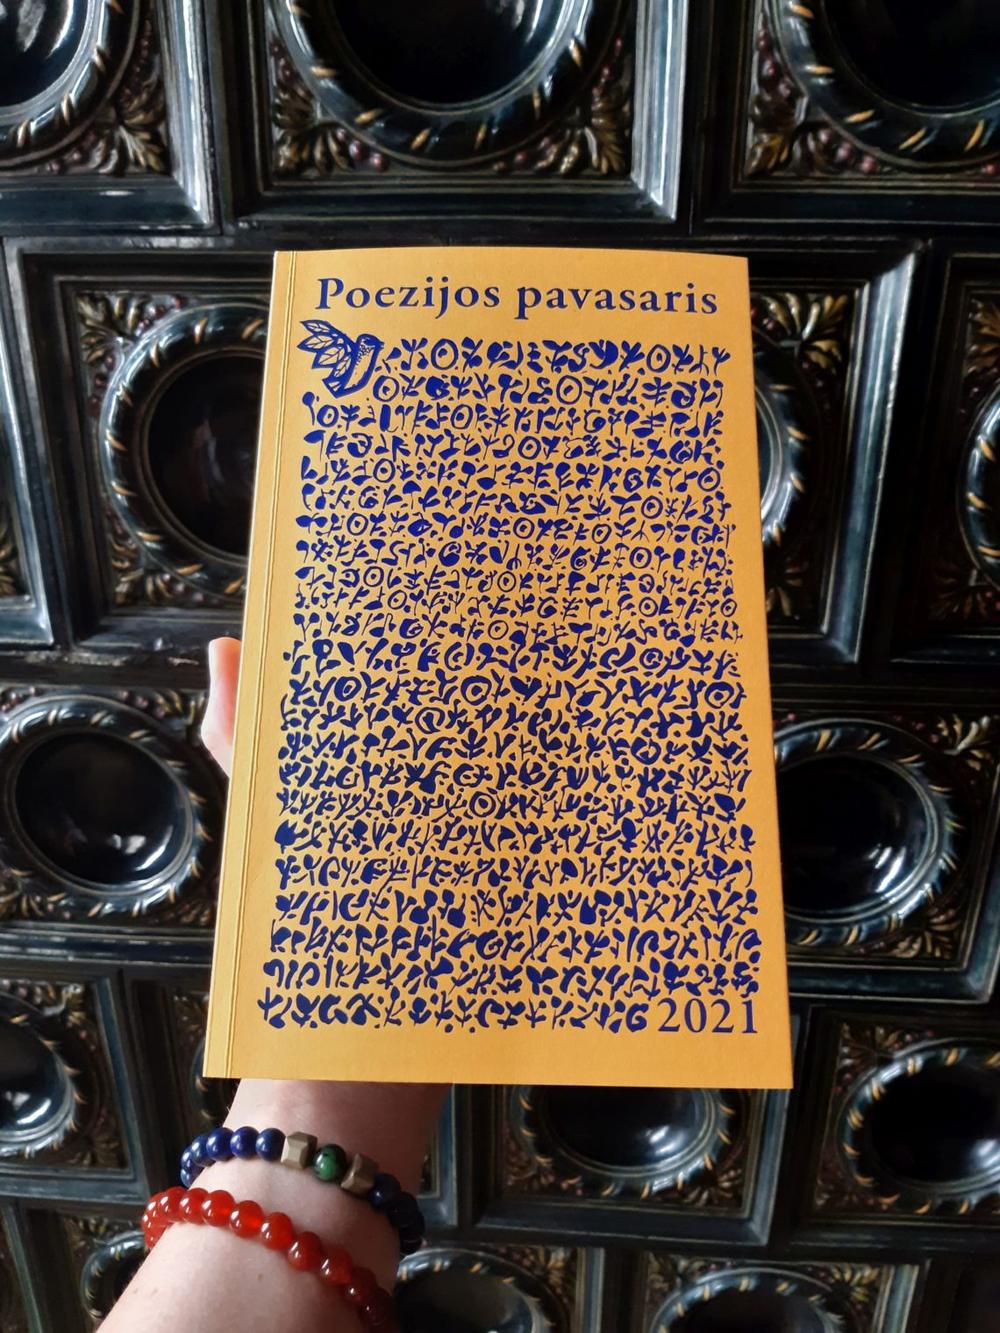 Poezijos pavasaris
2021